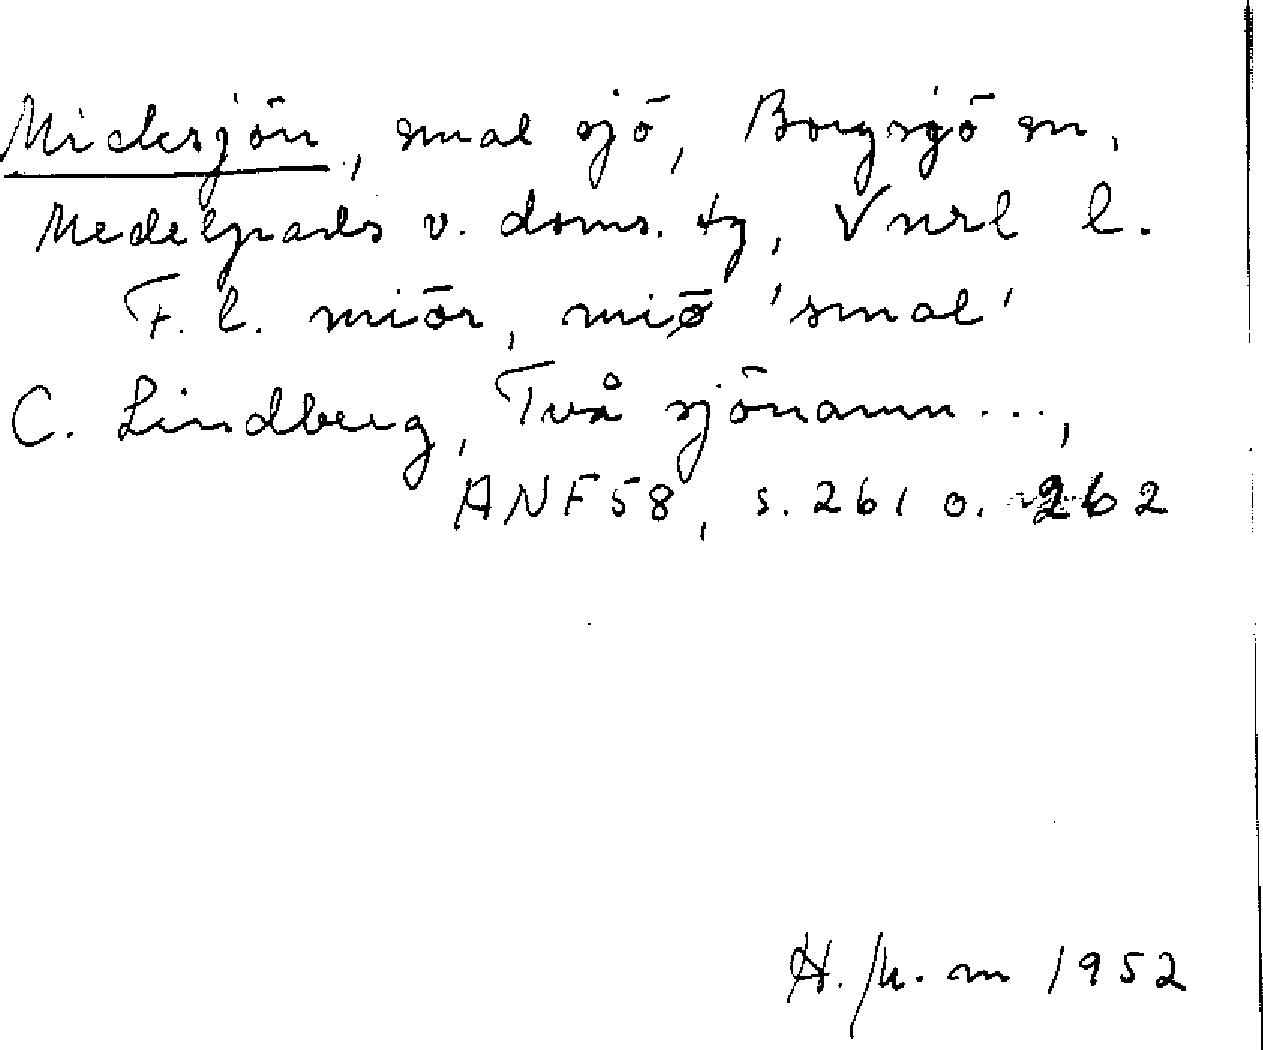 Micksjön, smal sjö, Borgsjö sn,
Medelpads v. doms. tg, Vnrl l.
F. l. miör, miø 'smal'
C. Lindberg, Två sjönamn...,
ANF 58, s. 261 o. 262
H. 1952